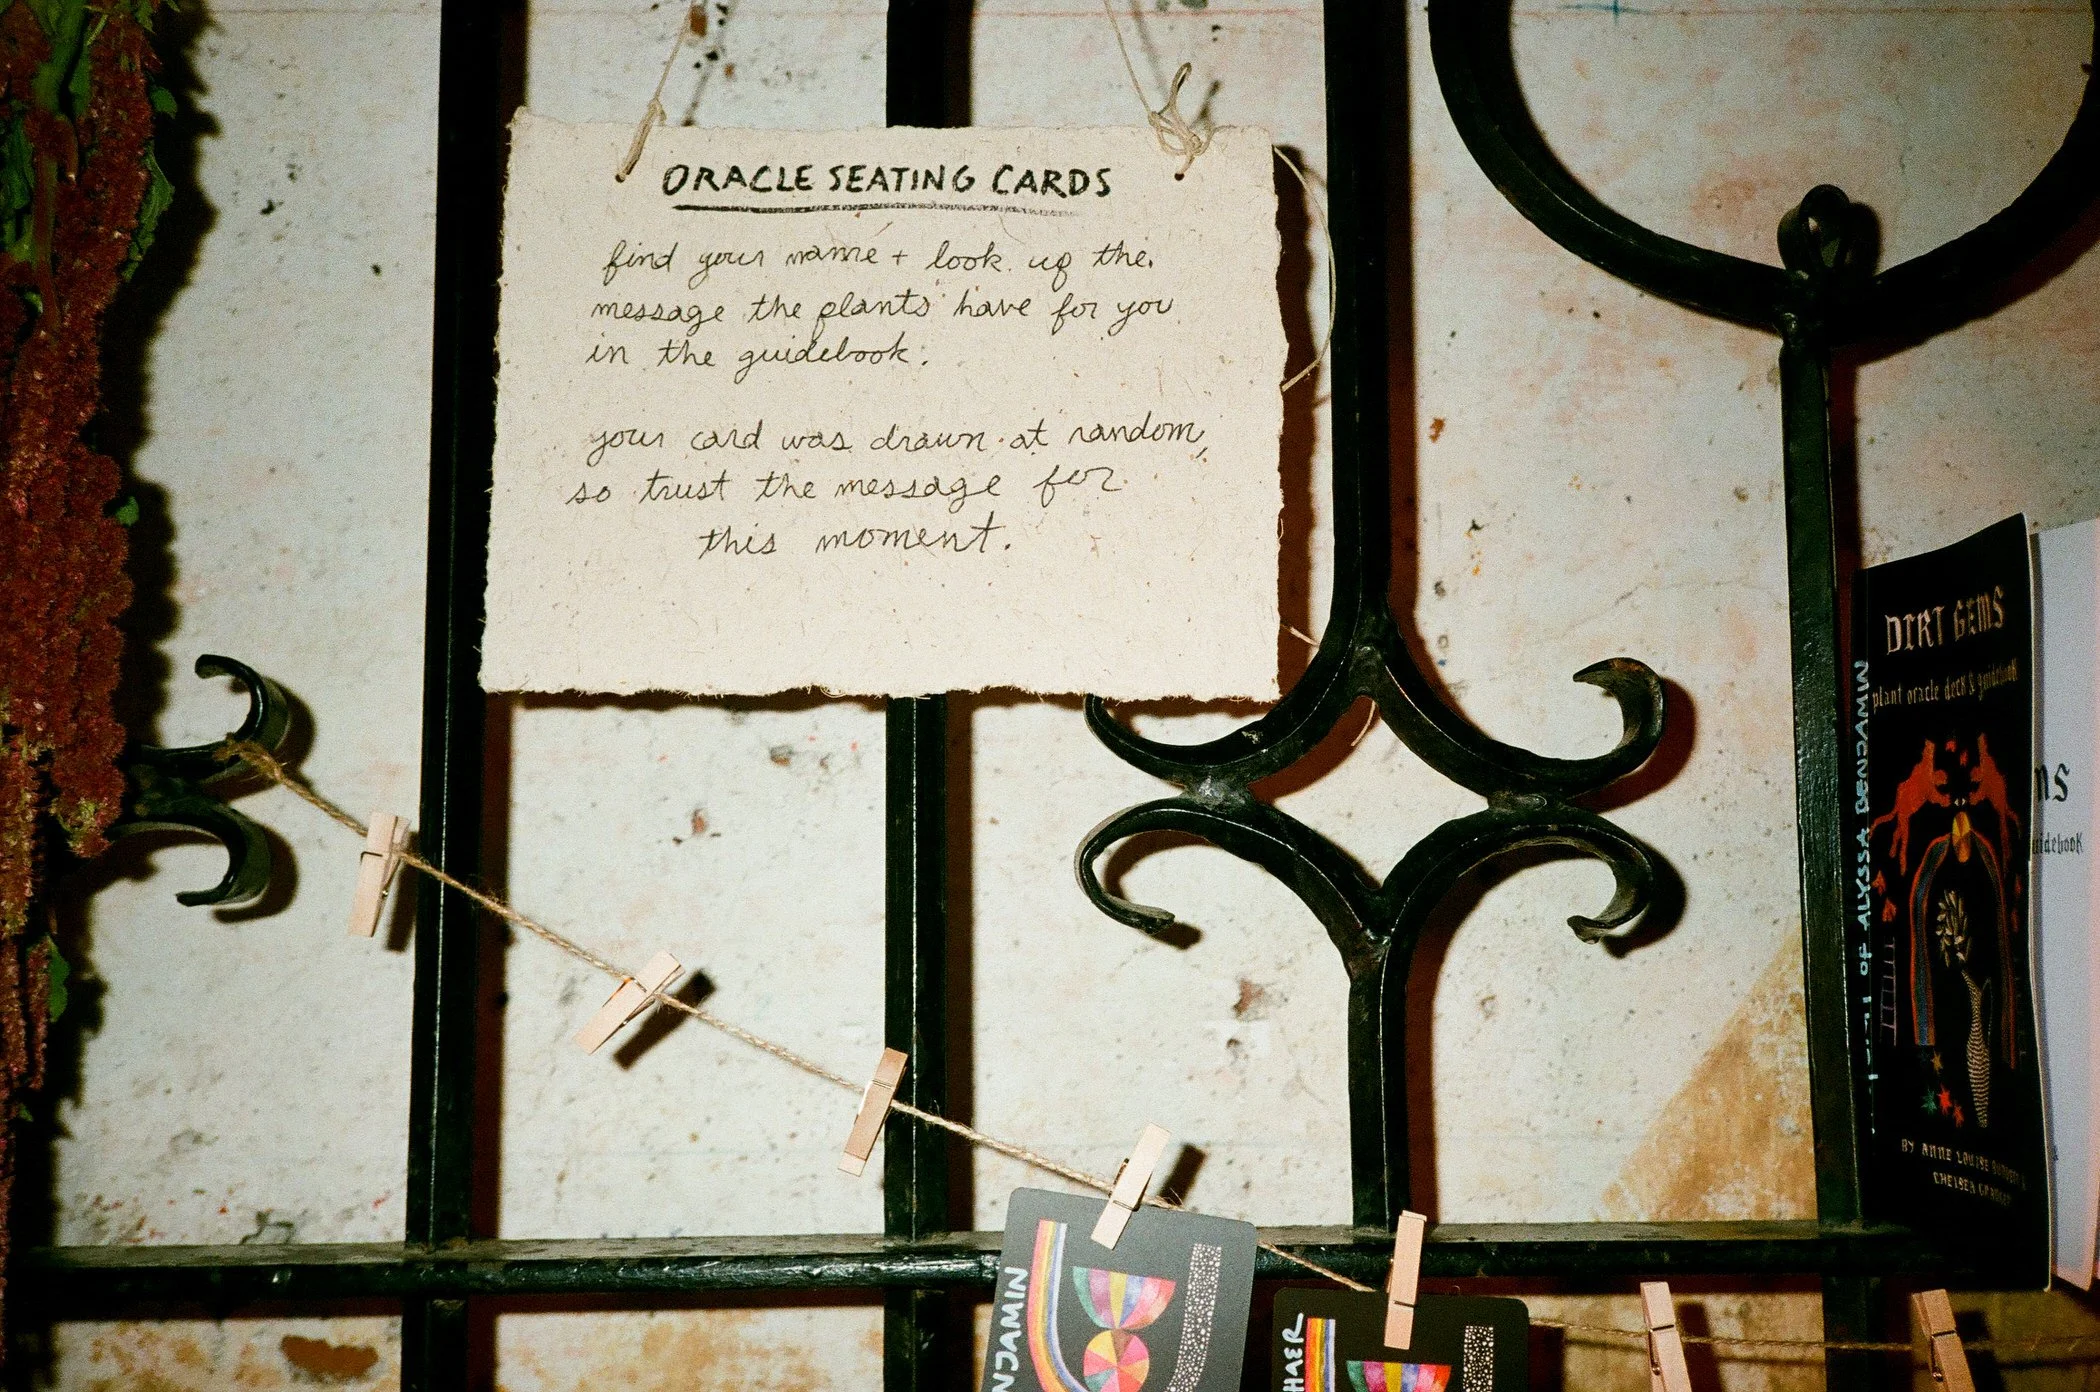 ORACLE SEATING CARDS
find your name + look up the
message the plants have for you
in the guidebook.
your card was drawn at random,
so trust the message for
this moment.
DIRT GEMS
plant oracle deck & guidebook
BY ANNE LOUISE
CHELSEA
OF ALYSSA BENJAMIN
MS
uidebook
NJAMIN
HAER